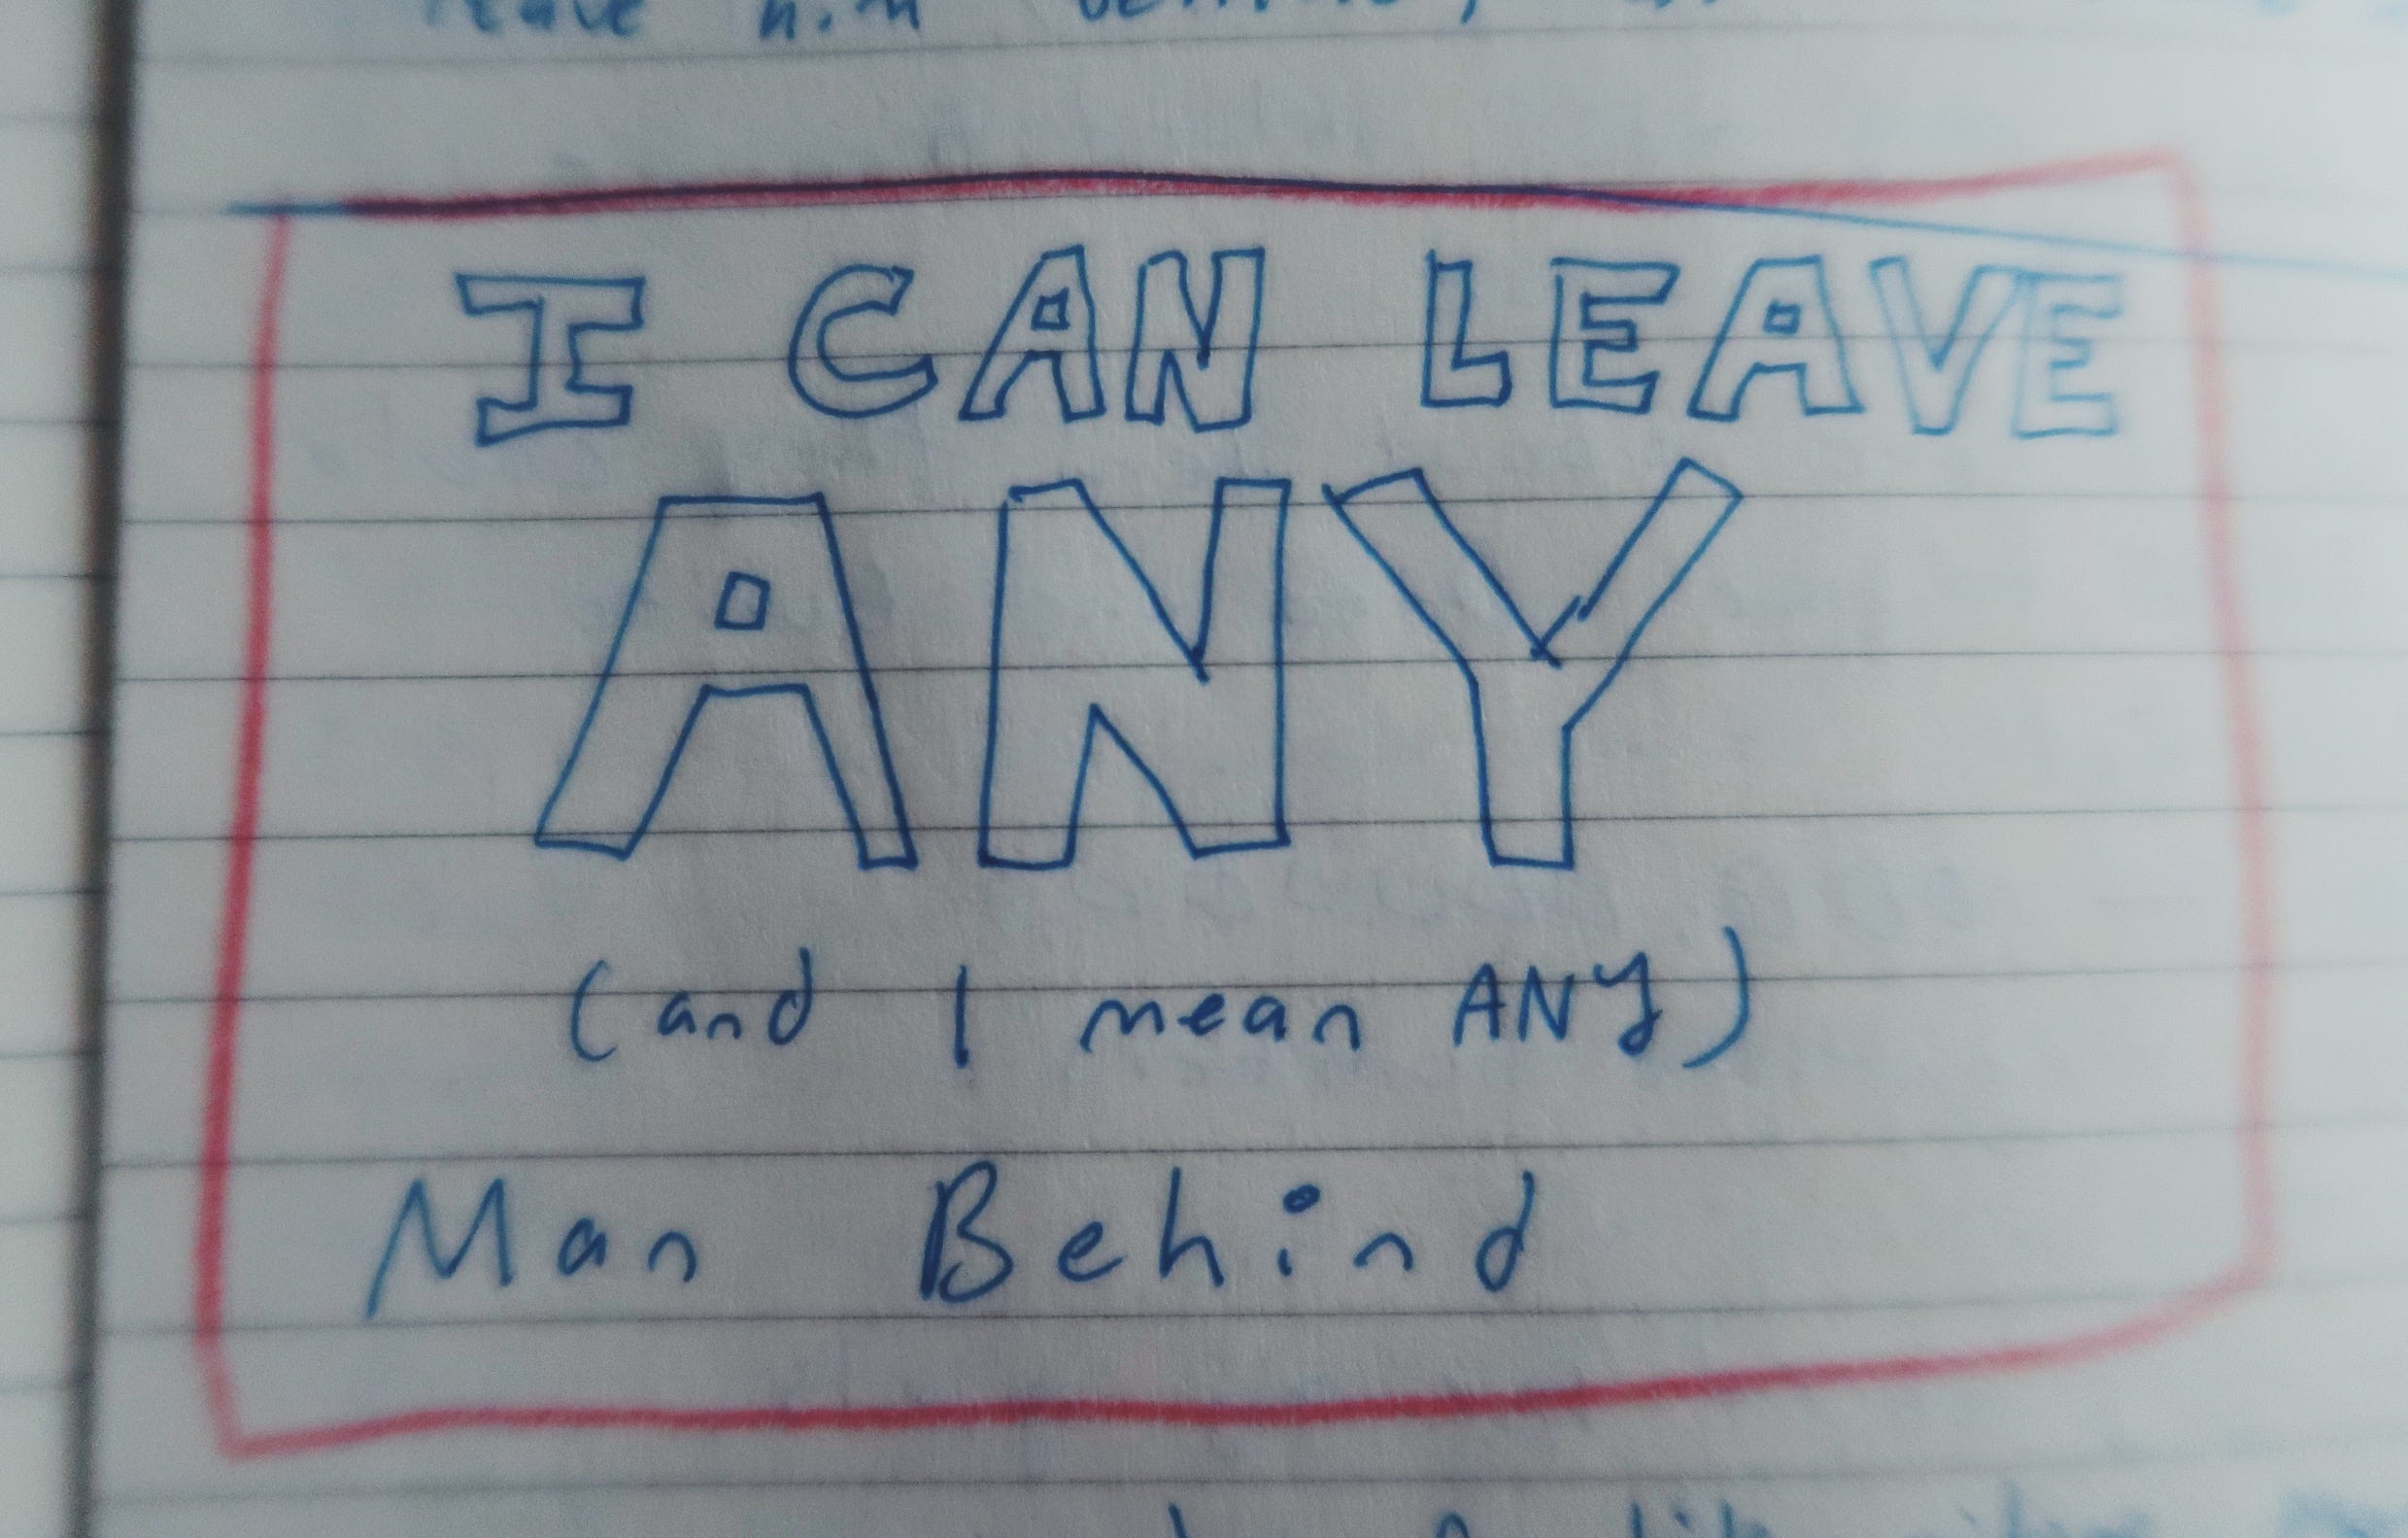 leave him
I CAN LEAVE
ANY
(and I mean ANY)
Man Behind